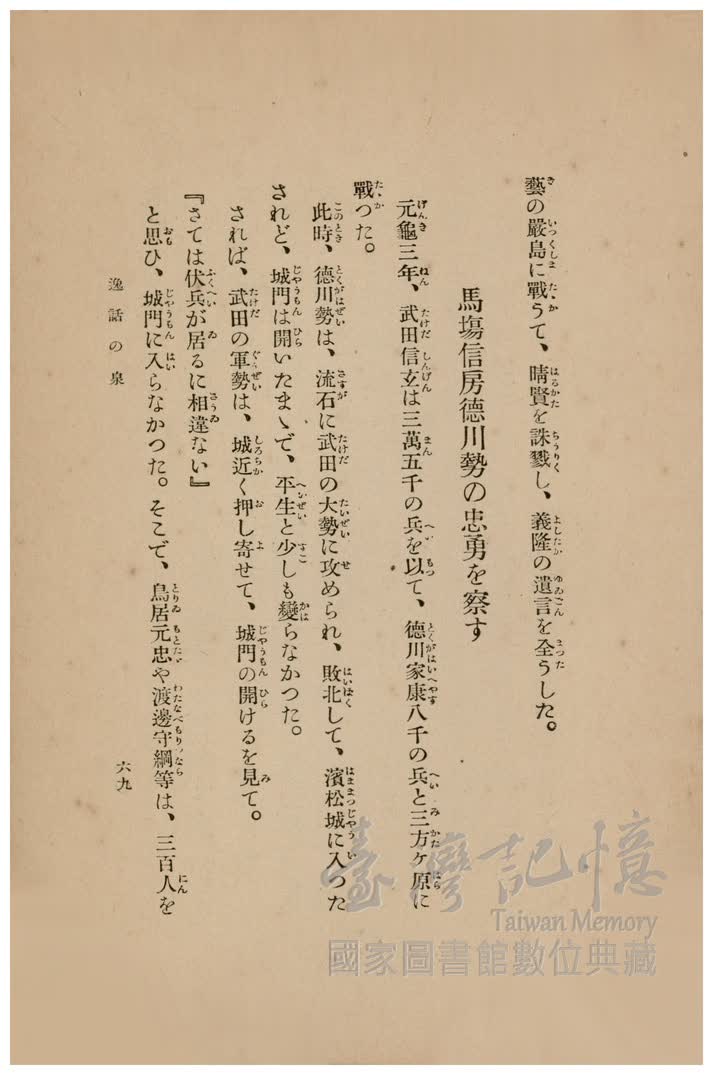 藝の嚴島に戰うて、晴賢を誅戮し、義隆の遺言を全うした。
馬塲信房德川勢の忠勇を察す
元龜三年、武田信玄は三萬五千の兵を以て、德川家康八千の兵と三方ケ原に
戰つた。
此時、德川勢は、流石に武田の大勢に攻められ、敗北して、濱松城に入つた
されど、城門は開いたまゝで、平生と少しも變らなかつた。
されば、武田の軍勢は、城近く押し寄せて、城門の開けるを見て。
『さては伏兵が居るに相違ない』
と思ひ、城門に入らなかつた。そこで、鳥居元忠や渡邊守綱等は、三百人を
逸話の泉
六九
臺灣記憶
Taiwan Memory
國家圖書館數位典藏